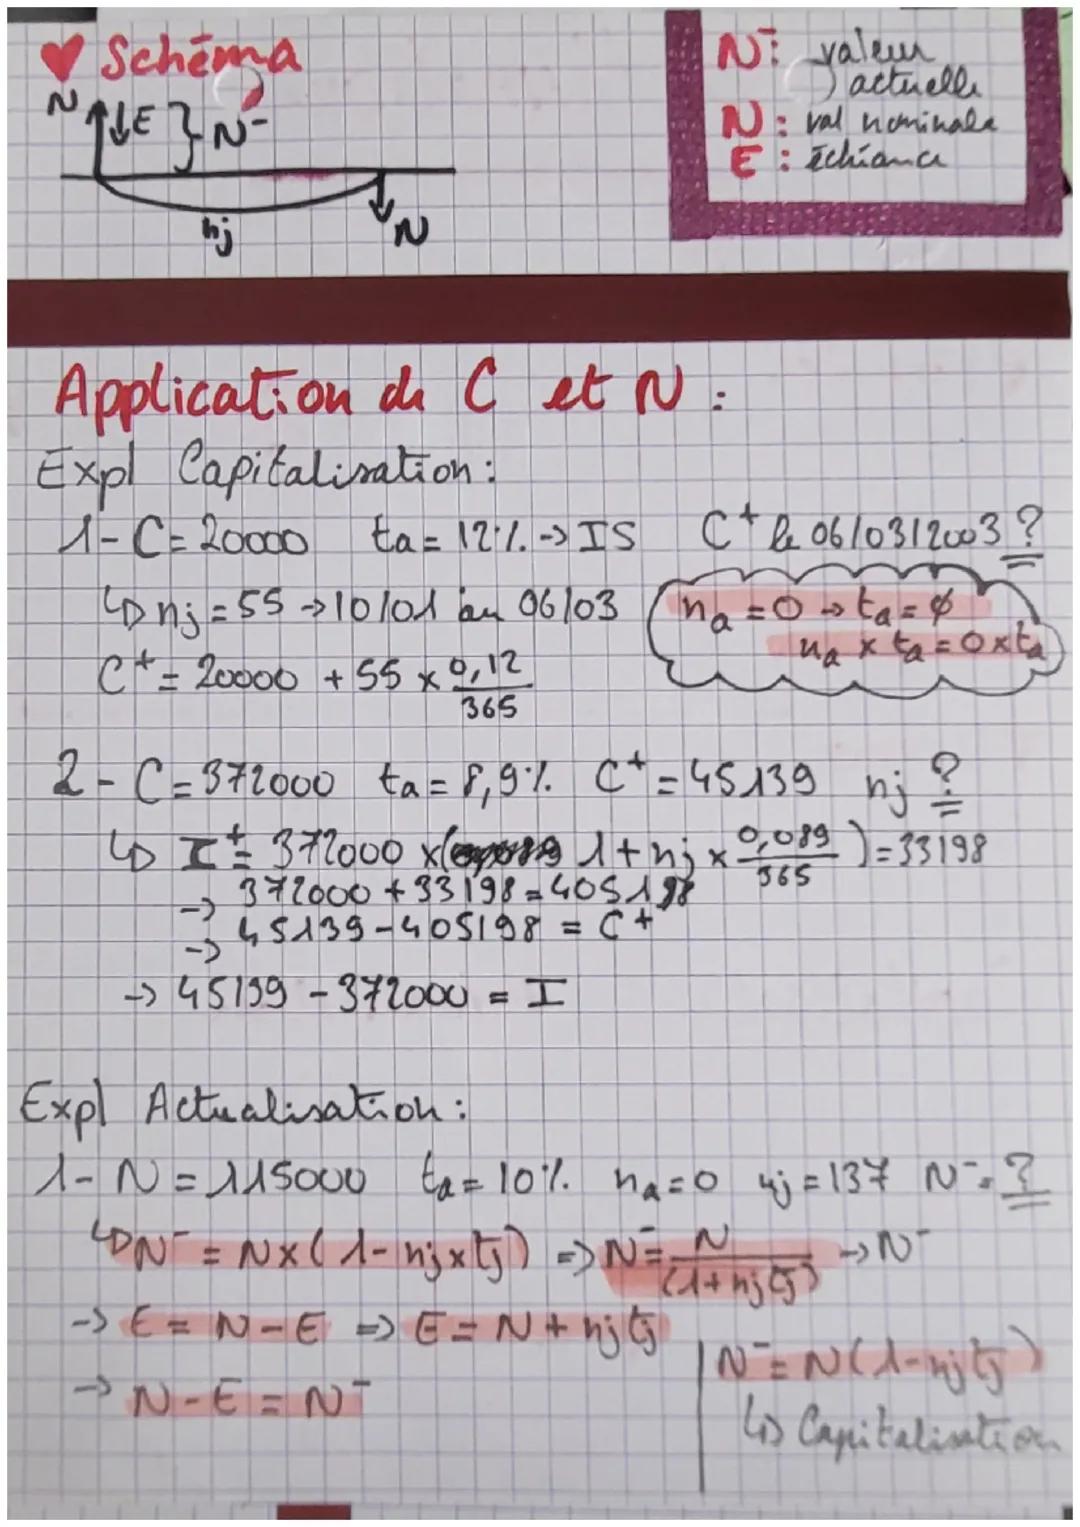 ♥ Schéma
N E } N⁻
nj N
N⁻: valeur
actuelle
N : val nominale
E : échéance
Application de C et N :
Expl Capitalisation :
1- C = 20000 ta = 12% → IS C⁺ le 06/03/2003 ?
↳ nj = 55 → 10/01 au 06/03
na = 0 → ta = ∅
na x ta = 0 x ta
C⁺ = 20000 + 55 x 0,12
365
2- C = 372000 ta = 8,9% C⁺ = 45139 nj ?
↳ I⁺ = 372000 x( 1 + nj x 0,089 ) = 33198
365
→ 372000 + 33198 = 405198
→ 45139 - 405198 = C⁺
→ 45139 - 372000 = I
Expl Actualisation :
1- N = 115000 ta = 10% na = 0 nj = 137 N⁻ = ?
↳ N⁻ = N x ( 1 - nj x tj ) ⇒ N⁻ = N → N⁻
(1 + nj tj)
→ E = N - E ⇒ E = N + nj tj
N⁻ = N (1 - nj tj)
→ N - E = N⁻
↳ Capitalisation